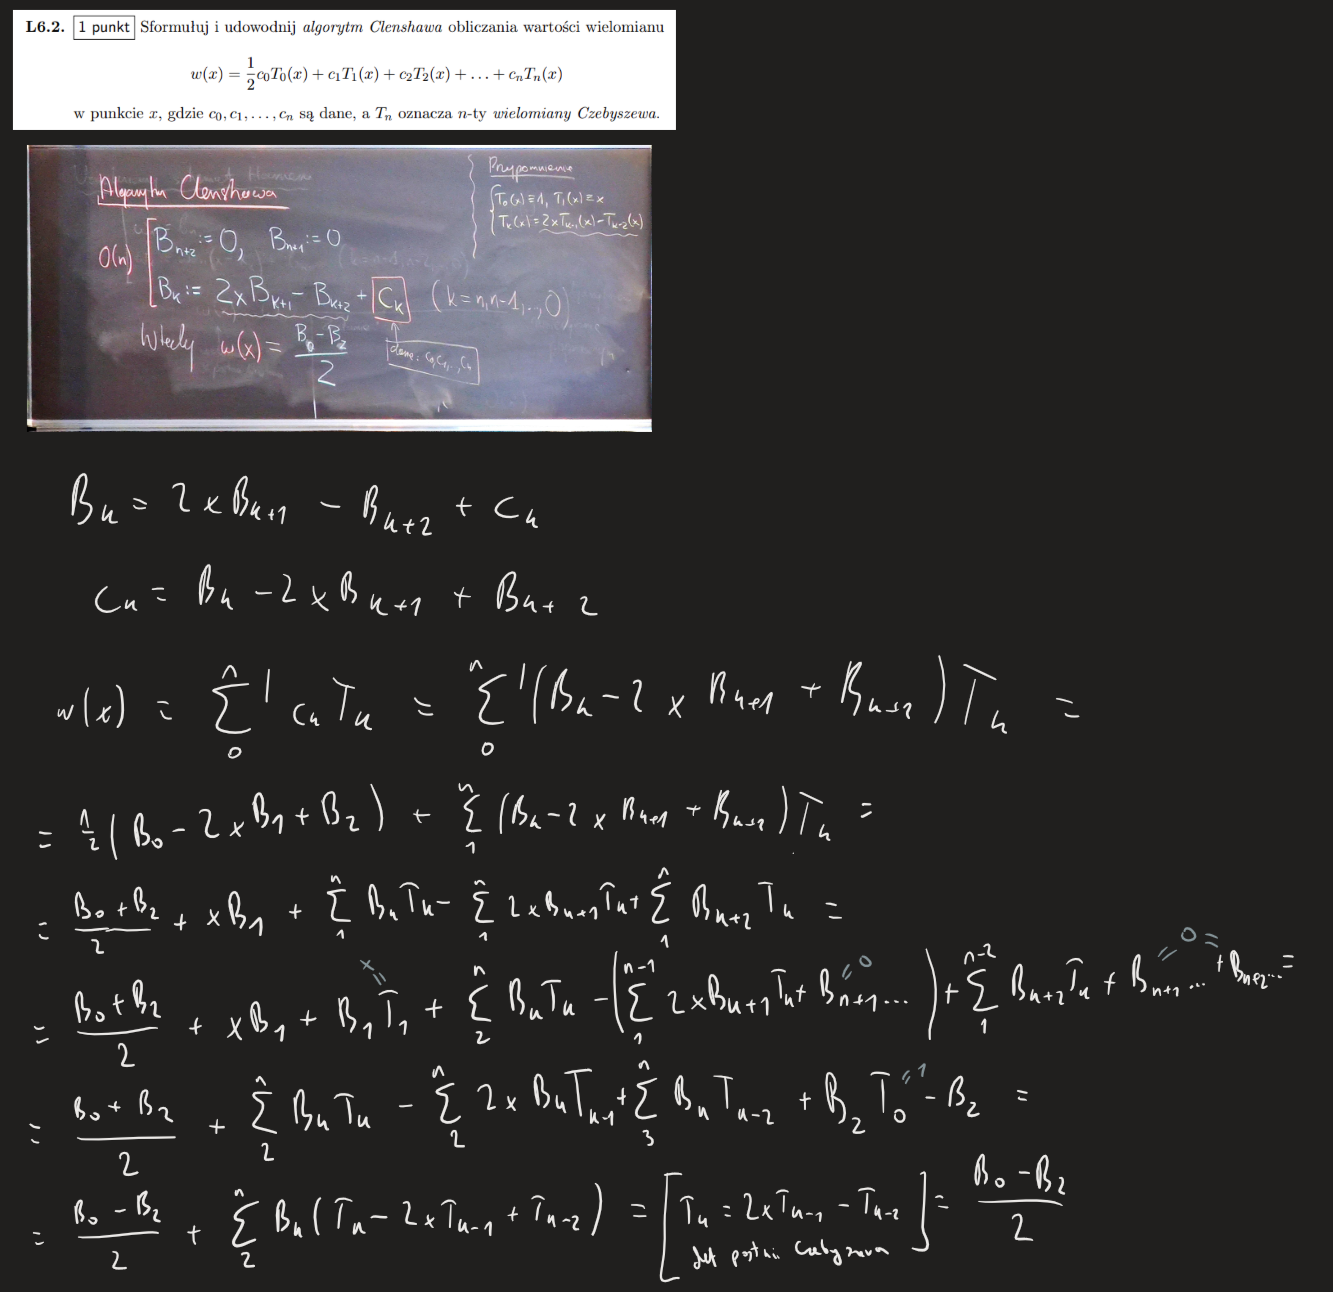 L6.2. 1 punkt Sformułuj i udowodnij algorytm Clenshawa obliczania wartości wielomianu
w(x) = 1/2 c₀T₀(x) + c₁T₁(x) + c₂T₂(x) + ... + cₙTₙ(x)
w punkcie x, gdzie c₀, c₁, ..., cₙ są dane, a Tₙ oznacza n-ty wielomiany Czebyszewa.
Przypomnienie
T₀(x) ≡ 1, T₁(x) = x
Tₖ(x) = 2xTₖ₋₁(x) - Tₖ₋₂(x)
Algorytm Clenshawa
O(n)
Bₙ₊₂ := 0, Bₙ₊₁ := 0
Bₖ := 2xBₖ₊₁ - Bₖ₊₂ + cₖ (k = n, n-1, ..., 0)
Wtedy w(x) = (B₀ - B₂)/2
dane: c₀, c₁, .., cₙ
Bₖ = 2xBₖ₊₁ - Bₖ₊₂ + cₖ
cₖ = Bₖ - 2xBₖ₊₁ + Bₖ₊₂
w(x) = ∑₀ⁿ' cₖTₖ = ∑₀ⁿ' (Bₖ - 2xBₖ₊₁ + Bₖ₊₂)Tₖ =
= 1/2 (B₀ - 2xB₁ + B₂) + ∑₁ⁿ (Bₖ - 2xBₖ₊₁ + Bₖ₊₂)Tₖ =
= (B₀ + B₂)/2 + xB₁ + ∑₁ⁿ BₖTₖ - ∑₁ⁿ 2xBₖ₊₁Tₖ + ∑₁ⁿ Bₖ₊₂Tₖ =
= (B₀ + B₂)/2 + xB₁ + B₁T₁ (= x) + ∑₂ⁿ BₖTₖ - (∑₁ⁿ⁻¹ 2xBₖ₊₁Tₖ + Bₙ₊₁... (= 0)) + ∑₁ⁿ⁻² Bₖ₊₂Tₖ + Bₙ₊₁... (= 0 =) + Bₙ₊₂... =
= (B₀ + B₂)/2 + ∑₂ⁿ BₖTₖ - ∑₂ⁿ 2xBₖTₖ₋₁ + ∑₃ⁿ BₖTₖ₋₂ + B₂T₀ (= 1) - B₂ =
= (B₀ - B₂)/2 + ∑₂ⁿ Bₖ(Tₖ - 2xTₖ₋₁ + Tₖ₋₂) = [Tₖ = 2xTₖ₋₁ - Tₖ₋₂ = (B₀ - B₂)/2
Czebyszewa]